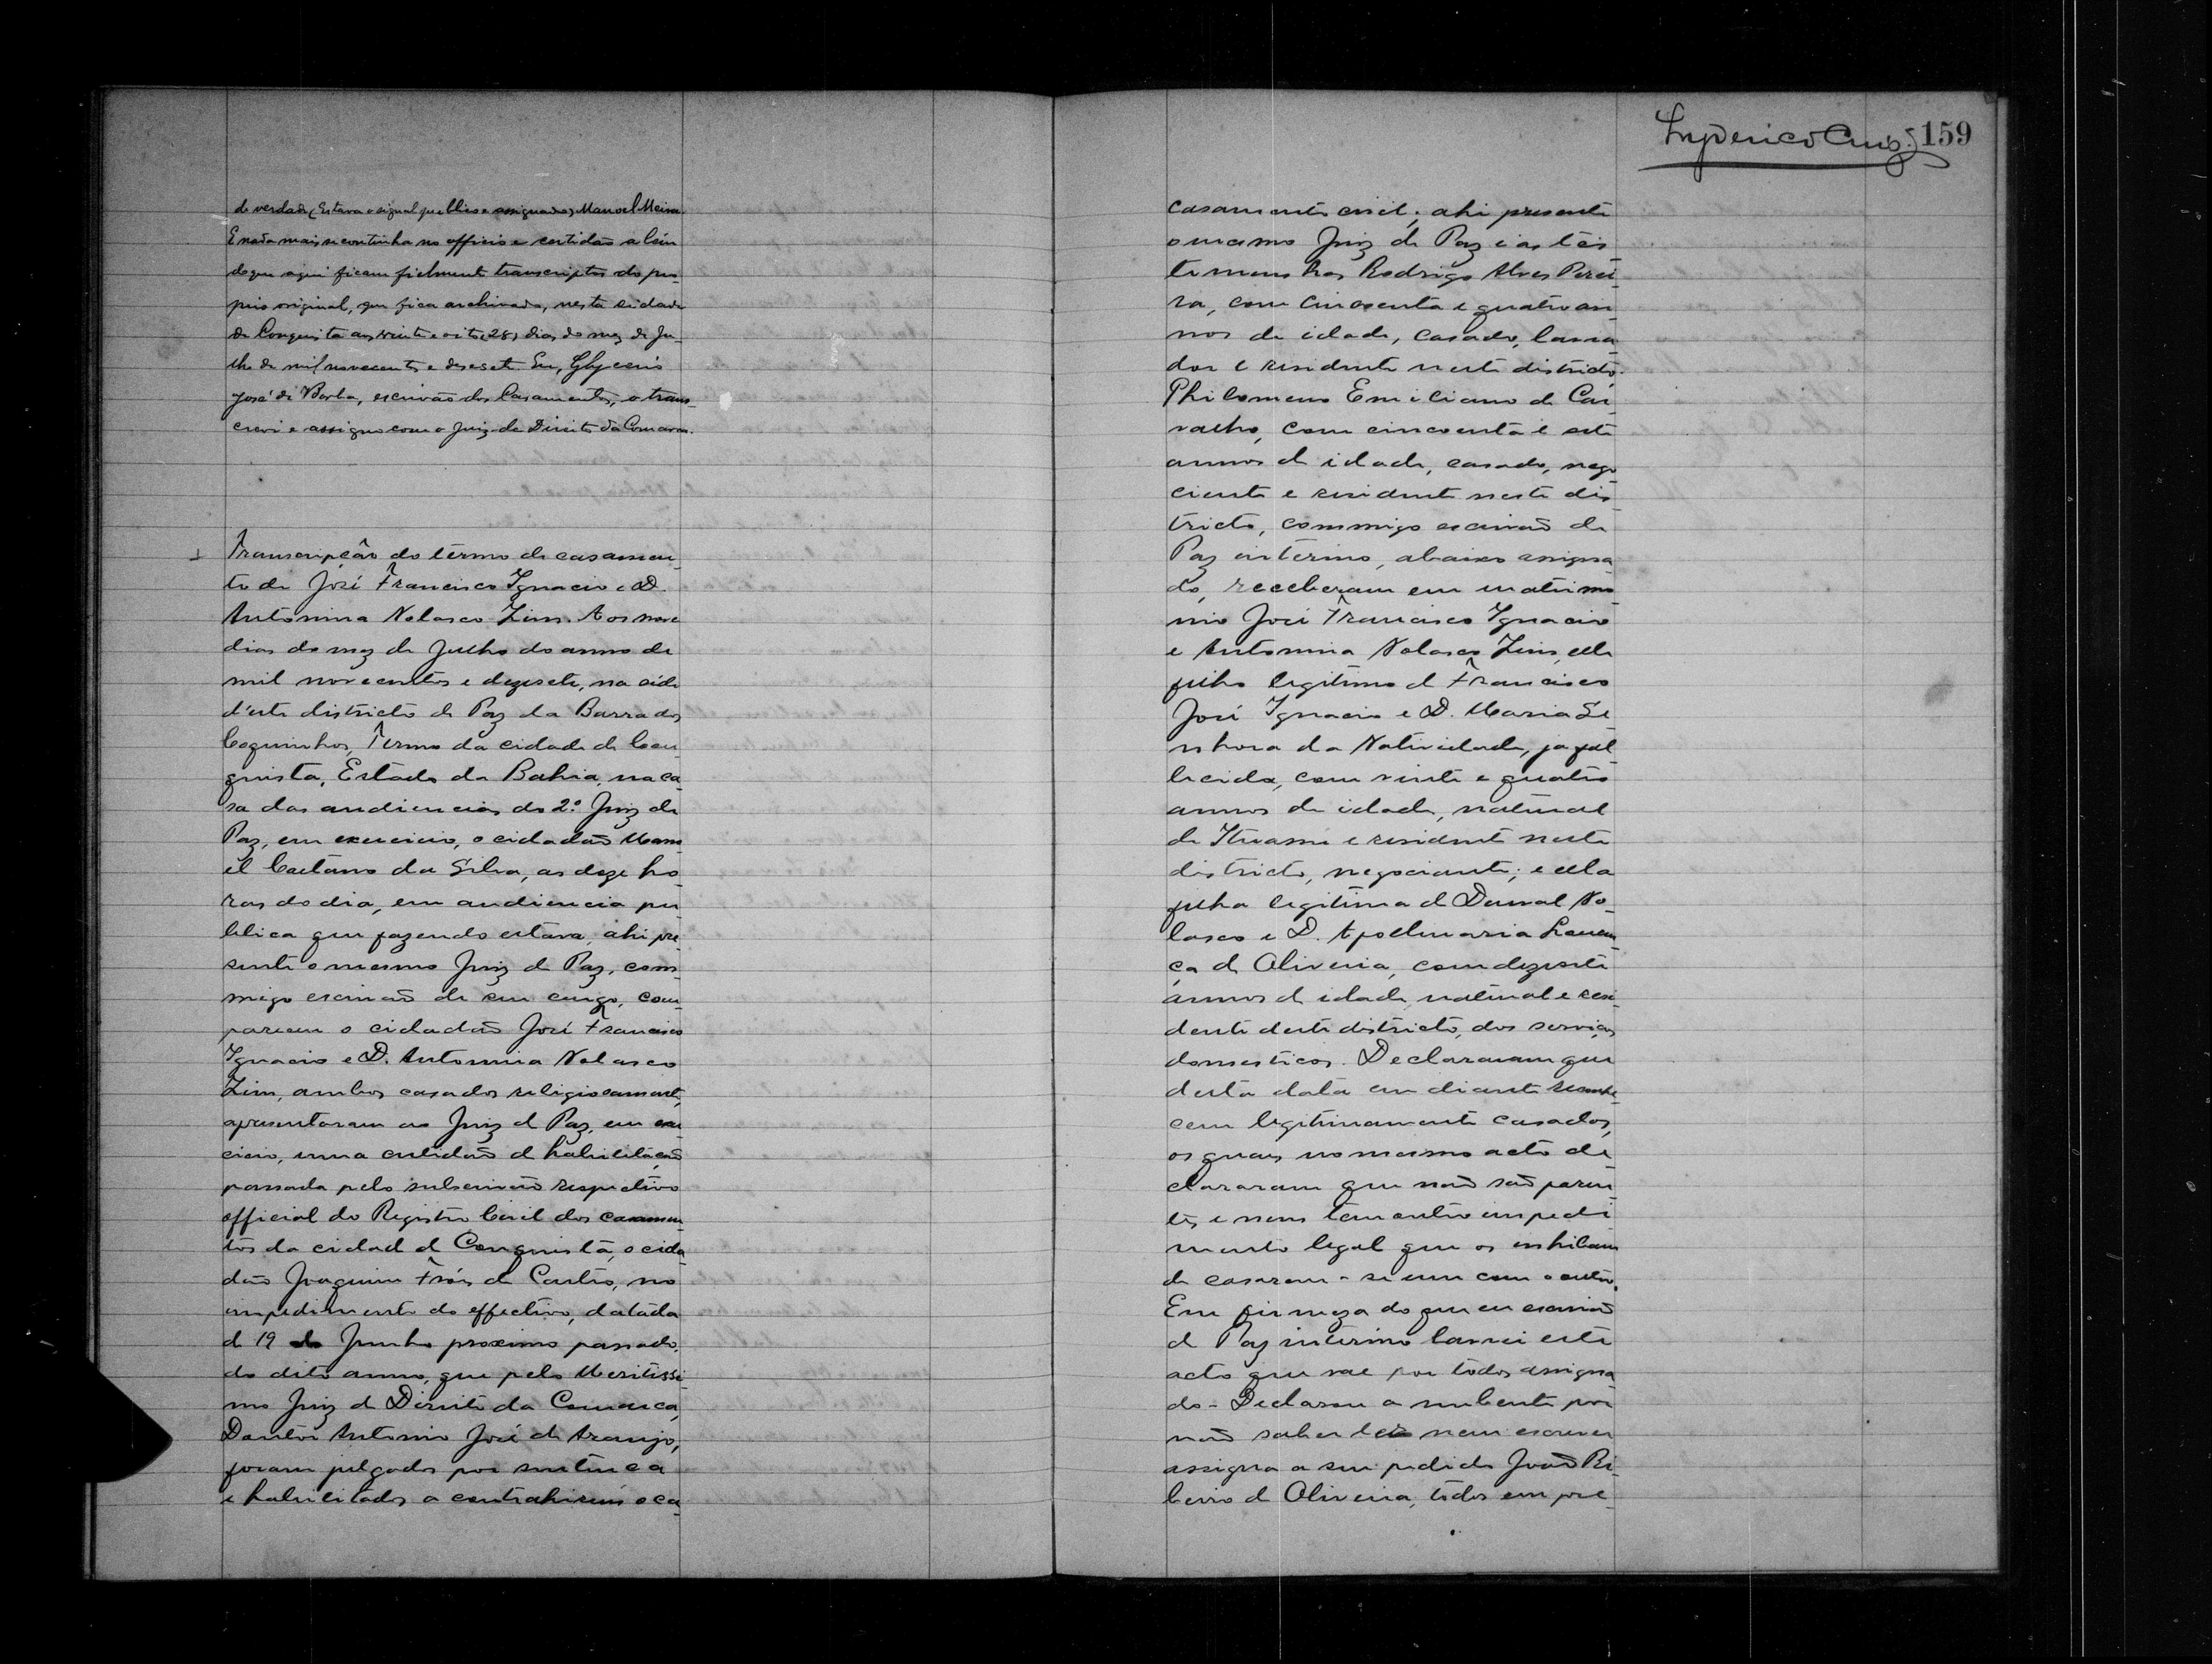 de verdade (Estava o signal publico e assignado) Manoel Meira.
E nada mais se continha no officio e certidão alem
do que aqui ficam fielmente transcriptos do pro-
prio original, que fica archivado, nesta cidade
de Conquista aos vinte e oito (28) dias do mez de Ju-
lho de mil novecentos e desesete. Eu, Glycerio
José de Borba, escrivão dos Casamentos, o trans-
crevi e assigno com o Juiz de Direito da Comarca.
Transcripção do termo de casamen-
to de José Francisco Ignacio e D.
Antonina Nolasco Zim. Aos nove
dias do mez de Julho do anno de
mil novecentos e dezesete, na séde
d'este districto de Paz da Barra dos
Coquinhos, Termo da cidade de Con-
quista, Estado da Bahia, na ca-
sa das audiencias do 2º Juiz de
Paz, em exercicio, o cidadão Mano-
el Caetano da Silva, as doze ho-
ras do dia, em audiencia pu-
blica que fazendo estava, ahi pre-
sente o mesmo Juiz de Paz, com-
migo escrivão de seu cargo, com-
pareceu o cidadão José Francisco
Ignacio e D. Antonina Nolasco
Zim, ambos casados religiosamente,
apresentaram ao Juiz de Paz, em exer-
cicio, uma certidão de habilitação
passada pelo subscrivão respectivo
official do Registro Civil dos casamen-
tos da cidade de Conquista, o cida-
dão Joaquim Fróes de Castro, no
impedimento do effectivo, datada
de 19 de Junho proximo passado,
do dito anno, que pelo Meritissi-
mo Juiz de Direito da Comarca,
Doutor Antonio José de Araujo,
foram julgados por sentença
e habilitados a contrahirem o ca-
159
casamento civil; ahi presente
o mesmo Juiz de Paz e as tes-
temunhas Rodrigo Alves Perei-
ra, com cincoenta e quatro an-
nos de idade, casado, lavra-
dor e residente neste districto.
Philomeno Emiliano de Car-
valho, com cincoenta e sete
annos de idade, casado, nego-
ciante e residente neste dis-
tricto, commigo escrivão de
Paz interino, abaixo assigna-
do, receberam em matrimo-
nio José Francisco Ignacio
e Antonina Nolasco Zim, elle
filho legitimo de Francisco
José Ignacio e D. Maria Se-
nhora da Natividade, ja fal-
lecida, com vinte e quatro
annos de idade, natural
de Ituassú e residente neste
districto, negociante; e ella
filha legitima de Durval No-
lasco e D. Apollinaria Louren-
ça de Oliveira, com dezesete
annos de idade natural e resi-
dente deste districto, dos serviços
domesticos. Declararam que
desta data em diante reconhe-
cem legitimamente casados,
os quaes no mesmo acto de-
clararam que não são paren-
tes e nem tem outro impedi-
mento legal que os inhibam
de casarem-se um com o outro.
Em firmeza do que eu escrivão
de Paz interino lavrei este
acto que vae por todos assigna-
do. Declarou a nubente por
não saber ler nem escrever
assigna a seu pedido João Ri-
beiro de Oliveira, todos em pre-